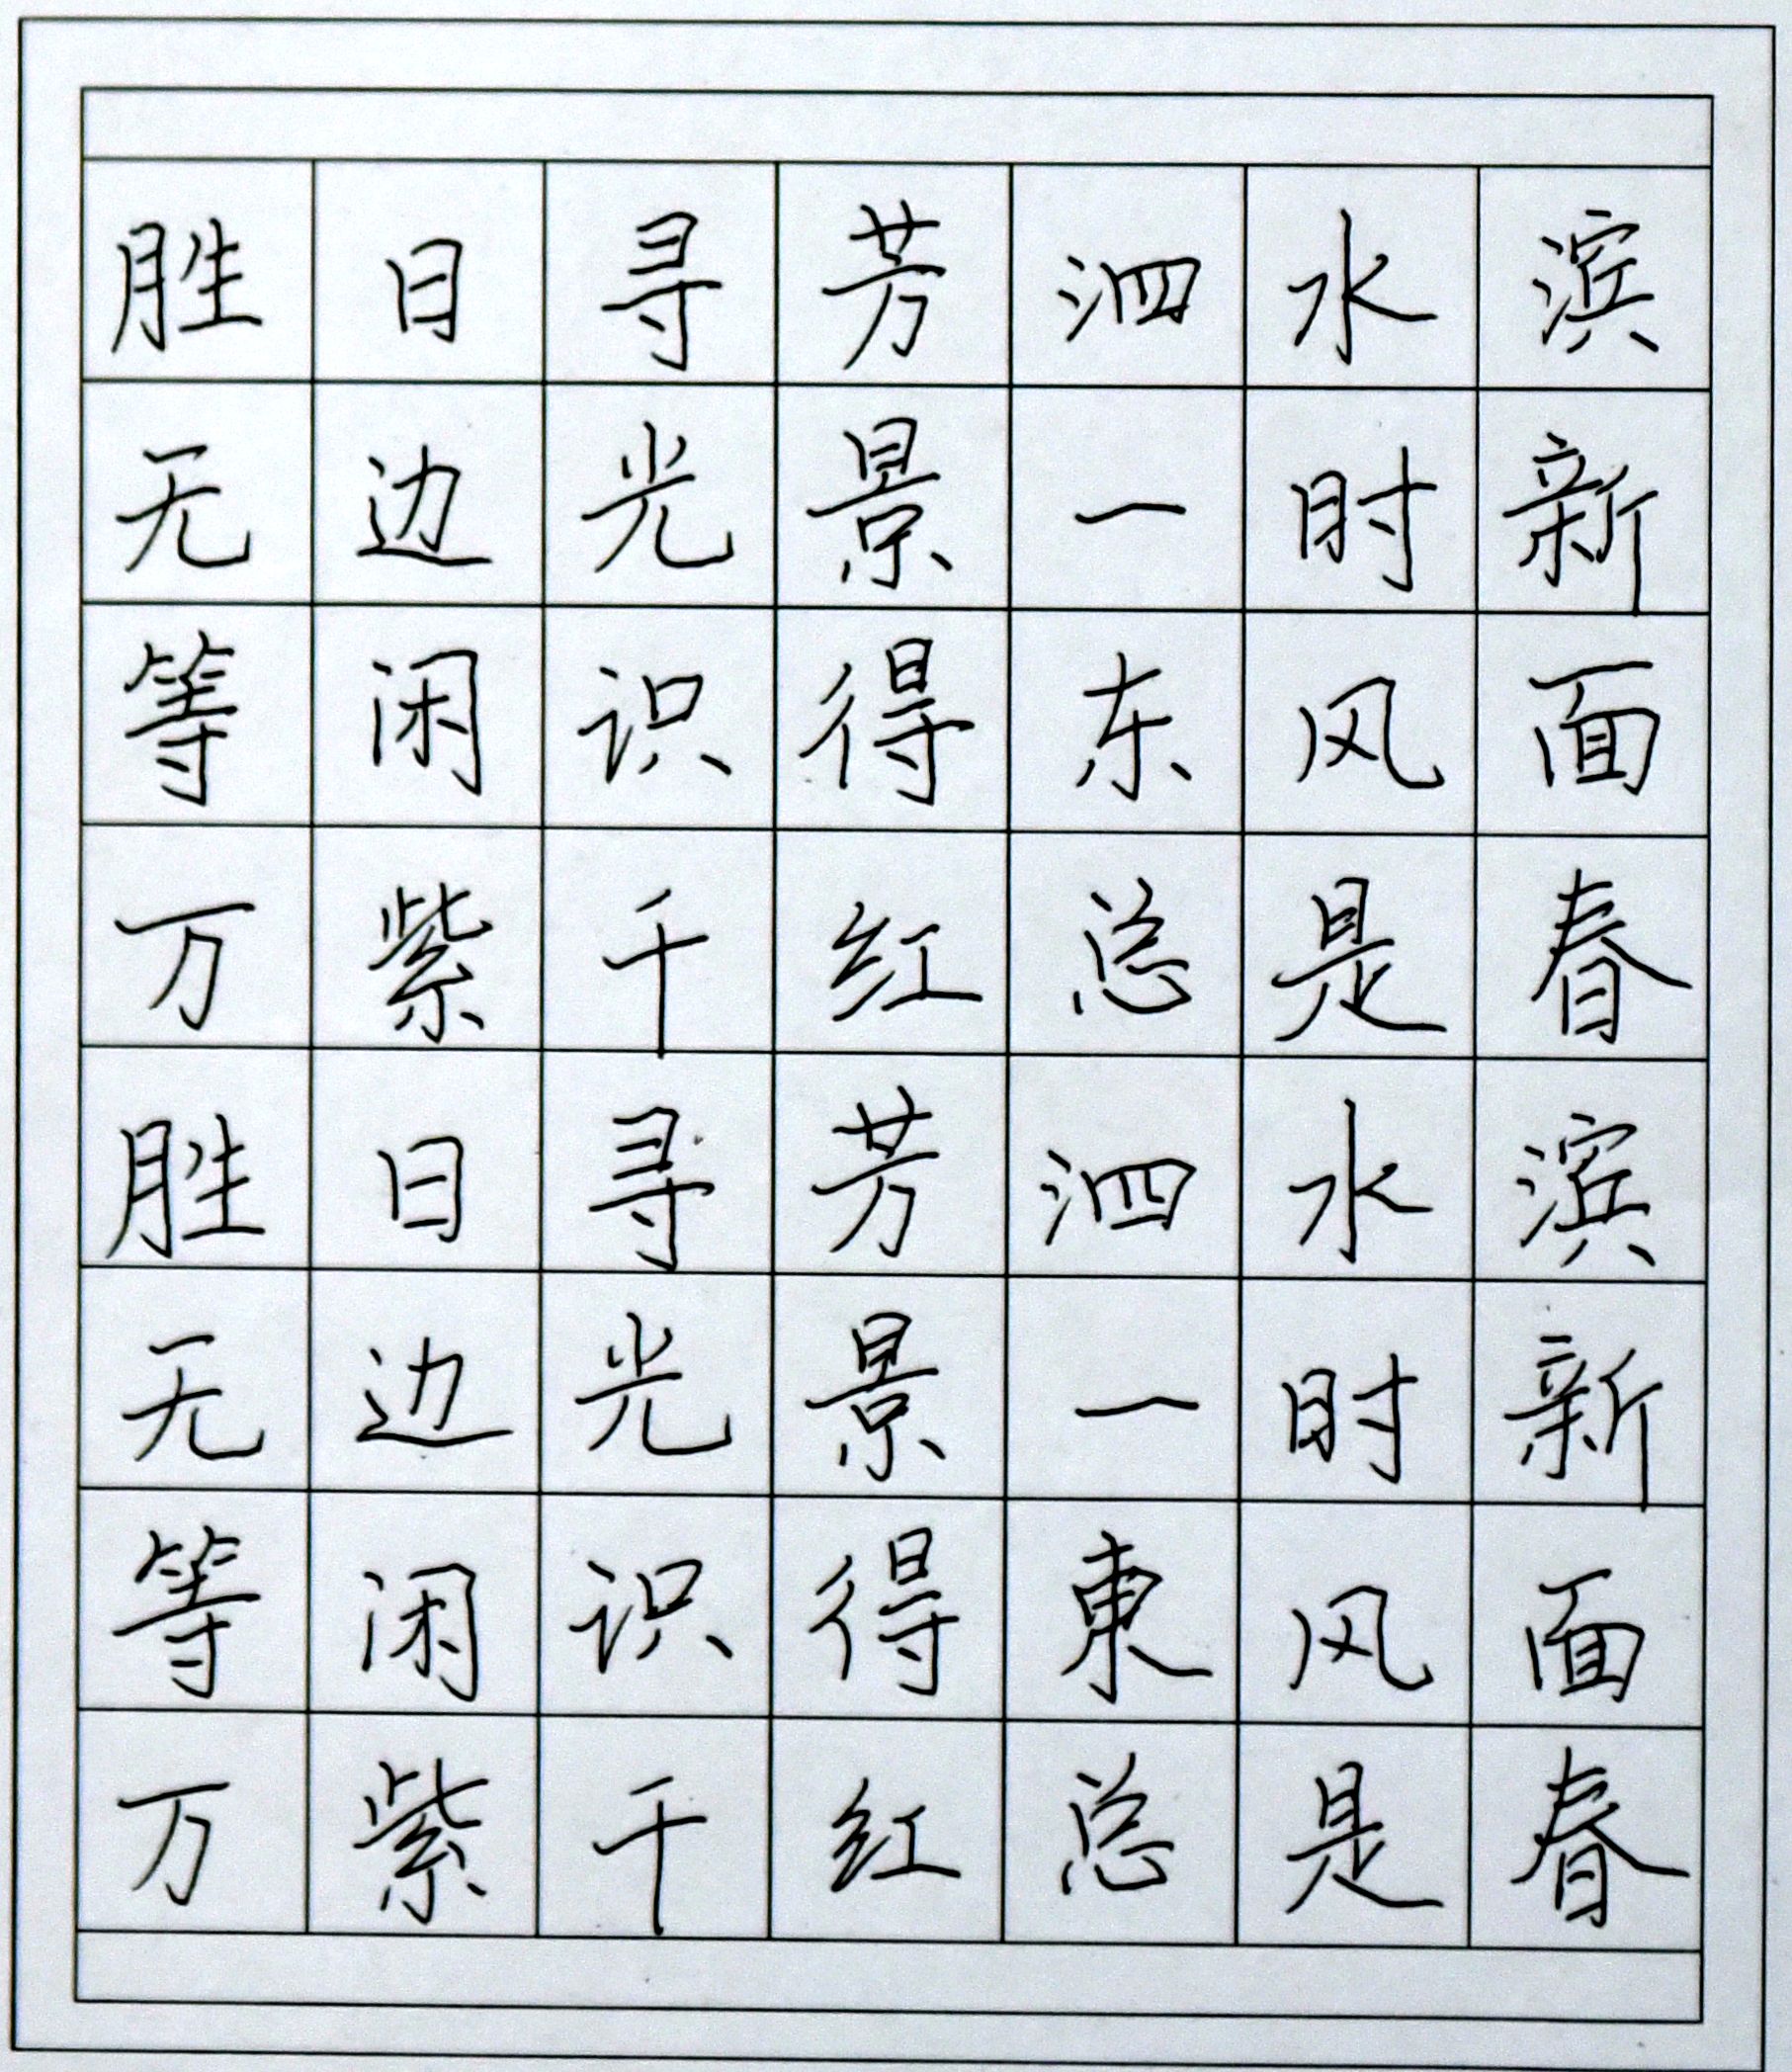 胜日寻芳泗水滨
无边光景一时新
等闲识得东风面
万紫千红总是春
胜日寻芳泗水滨
无边光景一时新
等闲识得東风面
万紫千红总是春